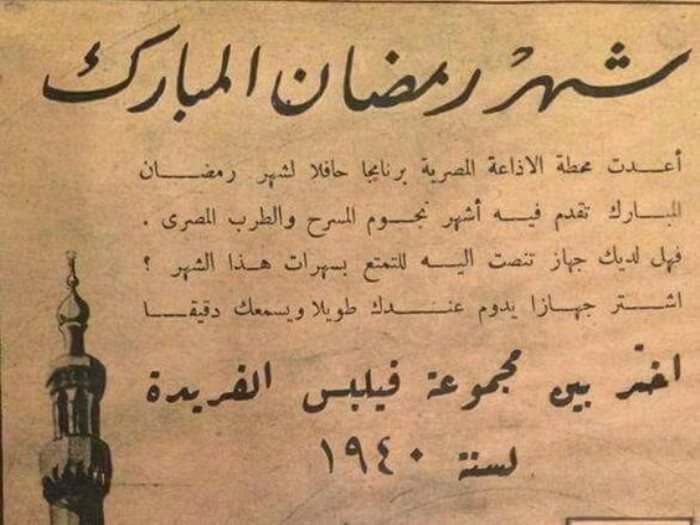 شهر رمضان المبارك
أعدت محطة الاذاعة المصرية برنامجا حافلا لشهر رمضان
المبارك تقدم فيه أشهر نجوم المسرح والطرب المصرى .
فهل لديك جهاز تنصت اليه للتمتع بسهرات هذا الشهر ؟
اشتر جهازا يدوم عندك طويلا ويسمعك دقيقا
اختر بين مجموعة فيلبس الفريدة
لسنة ١٩٤٠